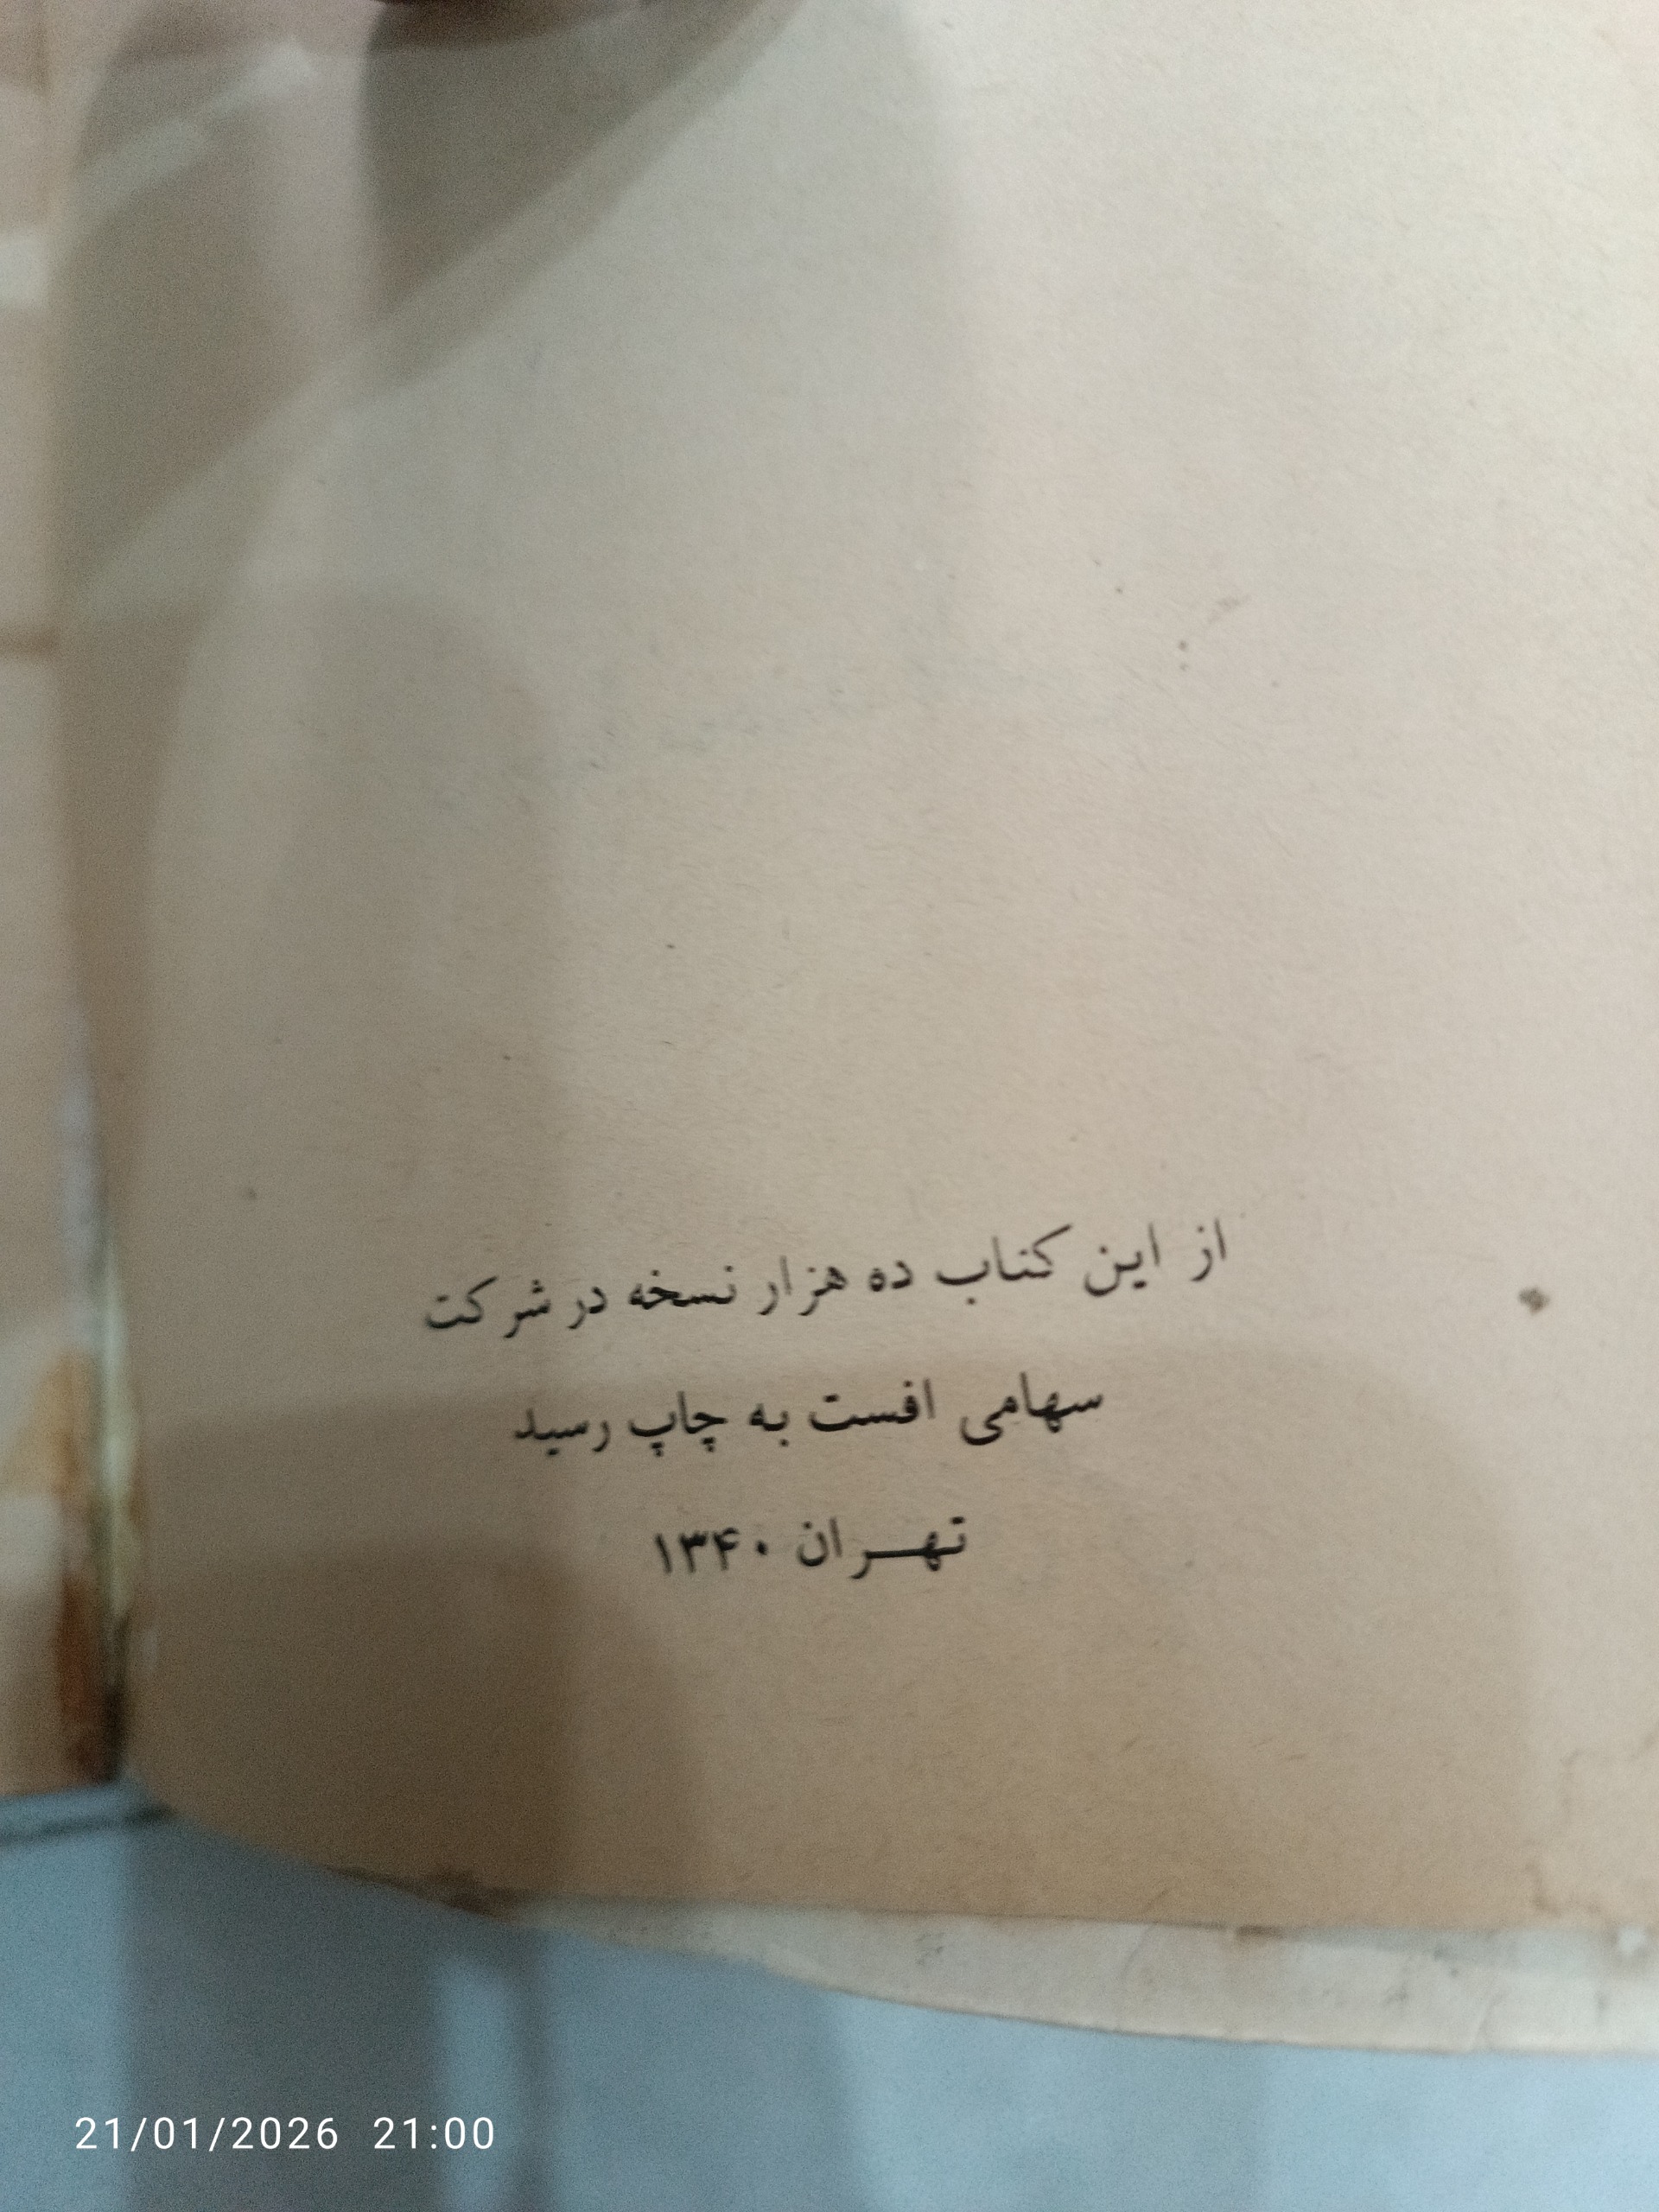 از این کتاب ده هزار نسخه در شرکت
سهامی افست به چاپ رسید
تهـران ۱۳۴۰
21/01/2026 21:00